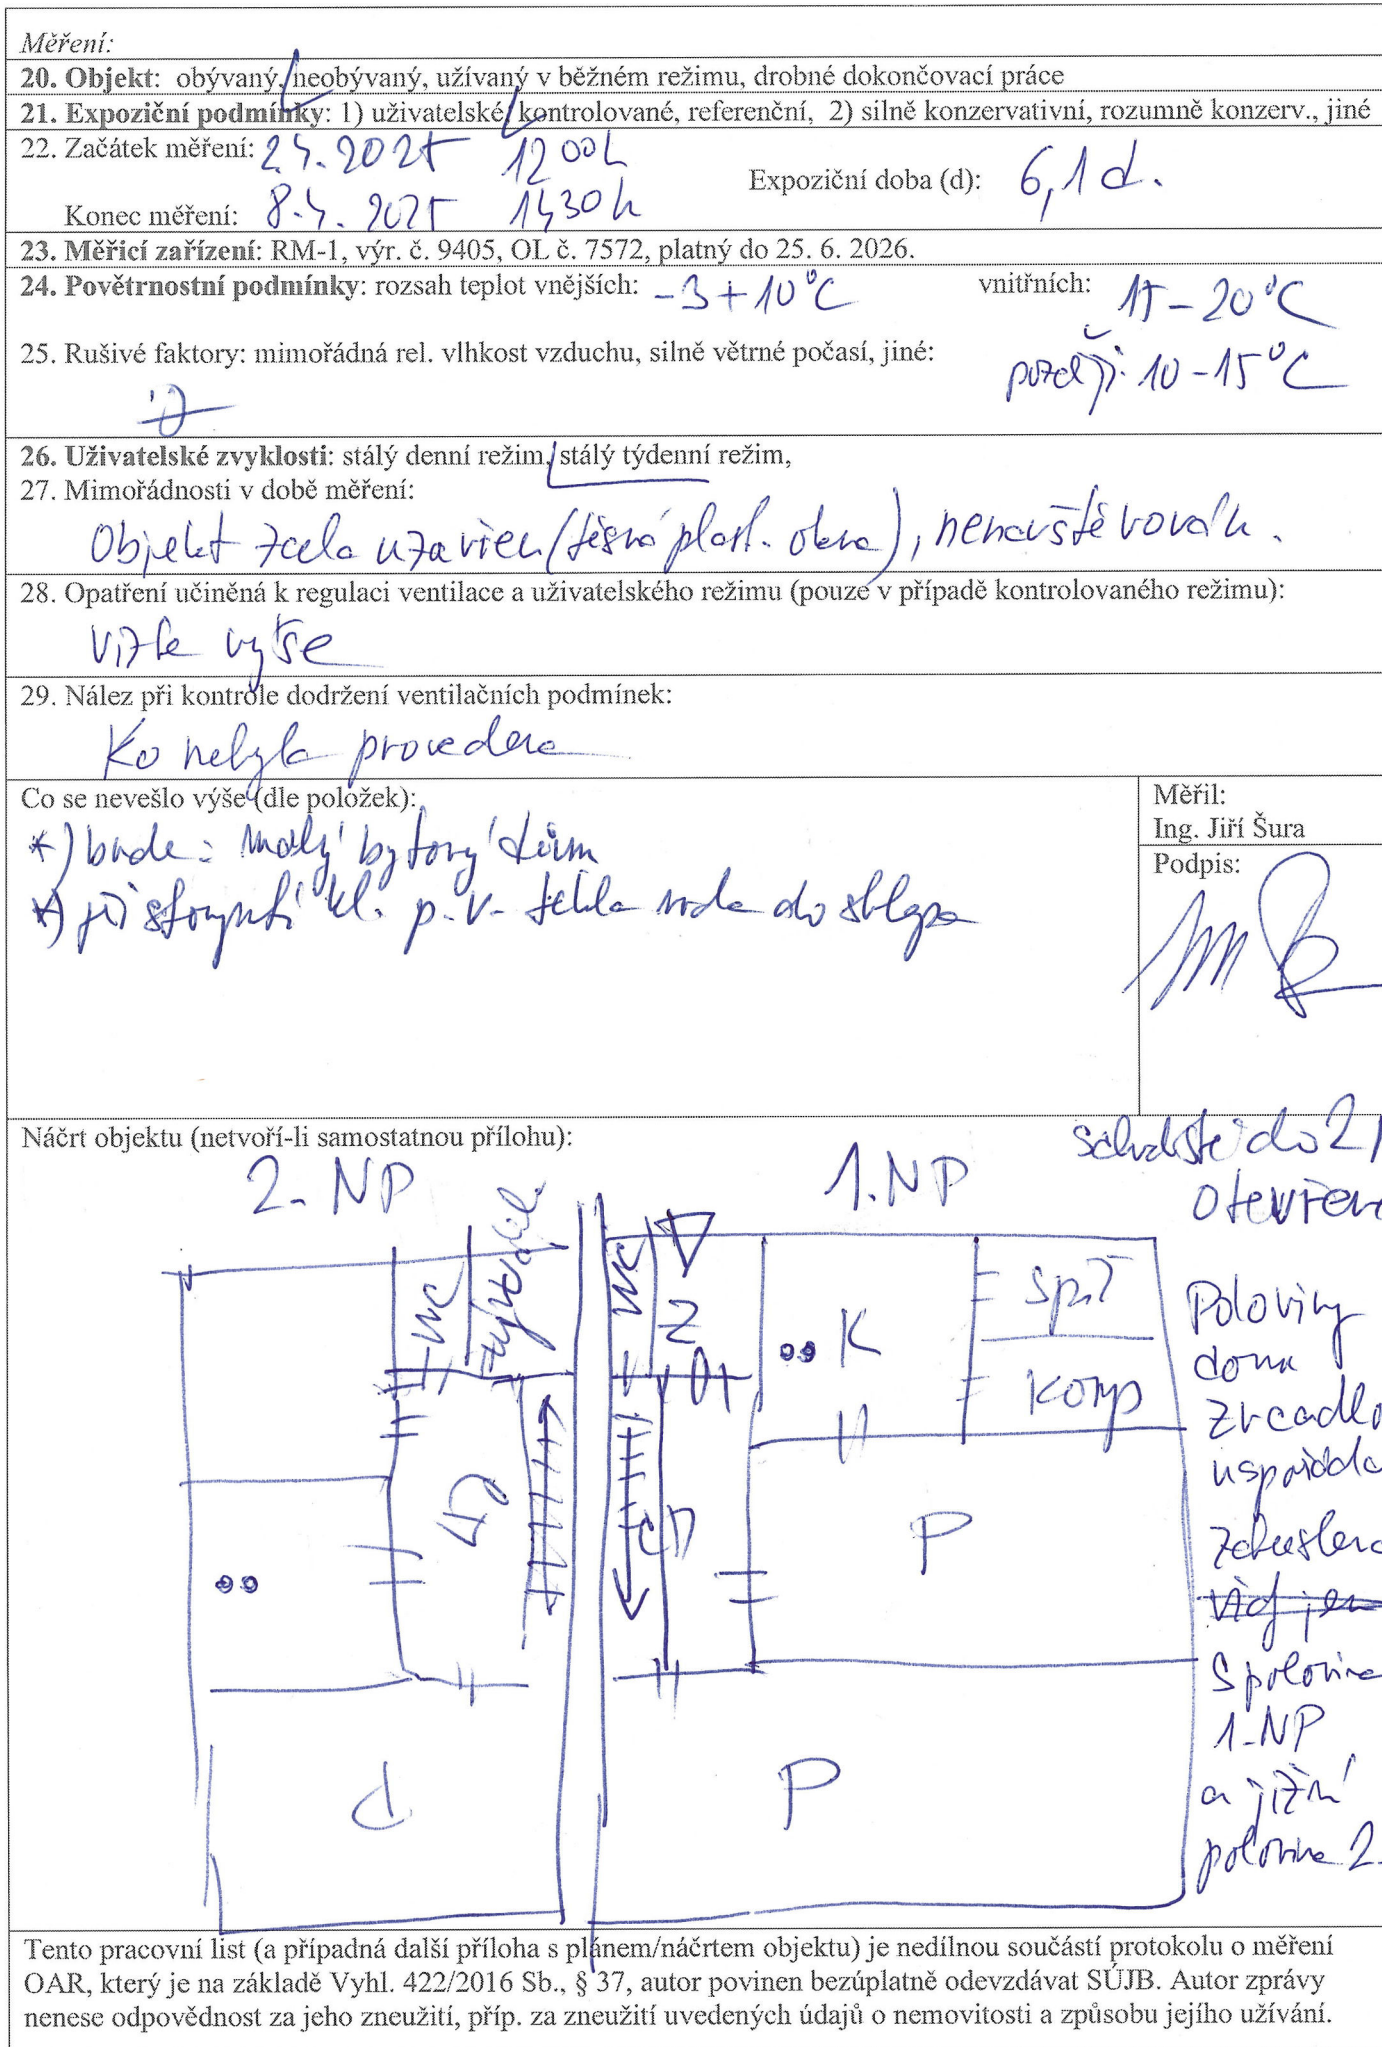 Měření:
20. Objekt: obývaný, neobývaný, užívaný v běžném režimu, drobné dokončovací práce
21. Expoziční podmínky: 1) uživatelské, kontrolované, referenční, 2) silně konzervativní, rozumně konzerv., jiné
22. Začátek měření: 2.4.2025 12 00h
Expoziční doba (d): 6,1 d.
Konec měření: 8.4.2025 1430h
23. Měřicí zařízení: RM-1, výr. č. 9405, OL č. 7572, platný do 25. 6. 2026.
24. Povětrnostní podmínky: rozsah teplot vnějších: -3 +10°C vnitřních: 15-20°C
25. Rušivé faktory: mimořádná rel. vlhkost vzduchu, silně větrné počasí, jiné:
později 10-15°C
26. Uživatelské zvyklosti: stálý denní režim, stálý týdenní režim,
27. Mimořádnosti v době měření:
Objekt zcela uzavřen (těsná plast. okna), nenavštěvován.
28. Opatření učiněná k regulaci ventilace a uživatelského režimu (pouze v případě kontrolovaného režimu):
vizte výše
29. Nález při kontrole dodržení ventilačních podmínek:
Ko nebyla provedena
Co se nevešlo výše (dle položek):
*) bude: malý bytový dům
*) při stoupnutí hl. p. v. tekla voda do sklepa
Měřil:
Ing. Jiří Šura
Podpis:
Náčrt objektu (netvoří-li samostatnou přílohu):
schodiště do 2
otevřen
2. NP
1. NP
WC
WC
Z
K
spíž
komp
P
P
d
Poloviny
domu
zrcadlo
uspořáda
zakreslena
S polovina
1.NP
a jižní
polovina 2.
Tento pracovní list (a případná další příloha s plánem/náčrtem objektu) je nedílnou součástí protokolu o měření
OAR, který je na základě Vyhl. 422/2016 Sb., § 37, autor povinen bezúplatně odevzdávat SÚJB. Autor zprávy
nenese odpovědnost za jeho zneužití, příp. za zneužití uvedených údajů o nemovitosti a způsobu jejího užívání.